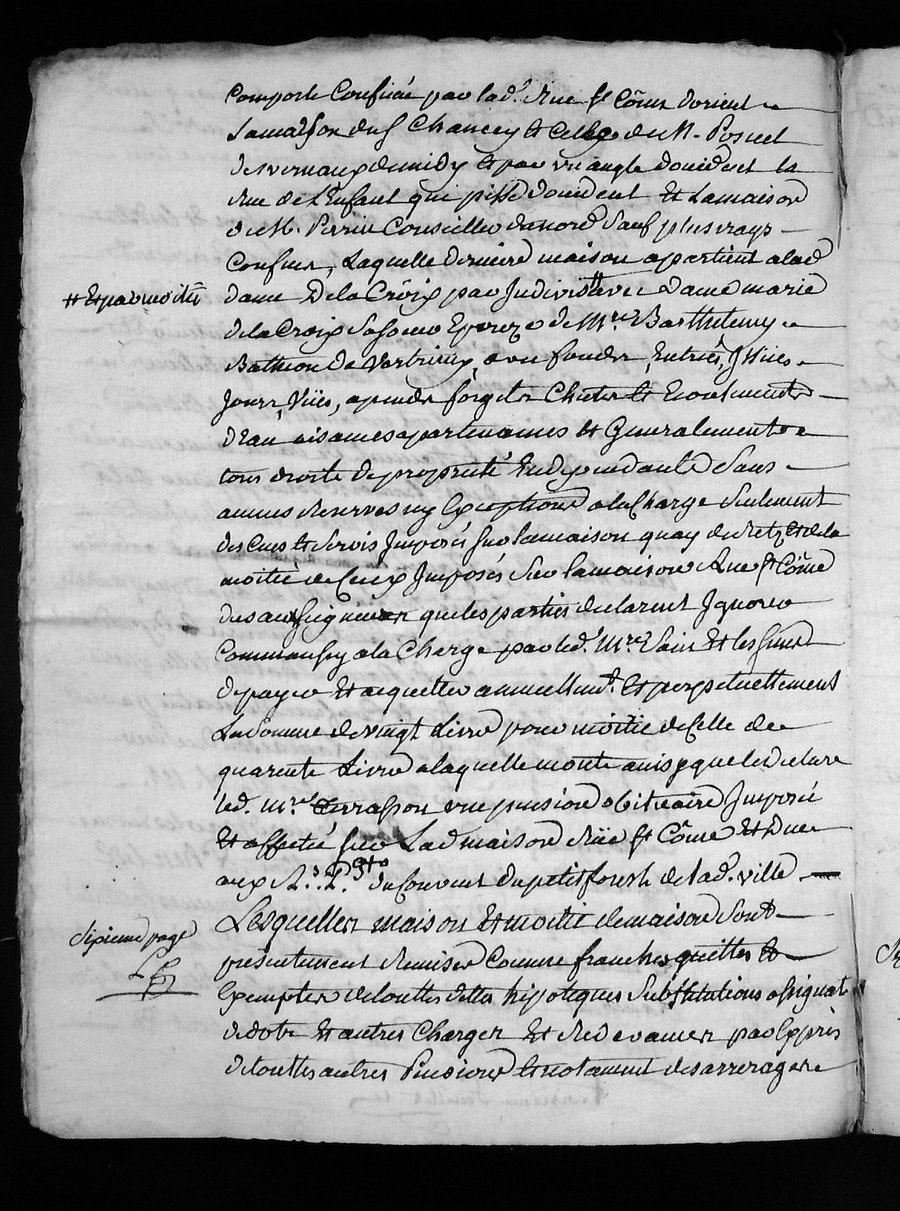 Comporte Confinée par lad.e Rue St Côme dorient
La maison du Sr Chancey et Celle de M. Posuel
de vernaux de midy et par un angle doccident la
Rue de L'Enfant qui pisse doccident et La maison
de M. Perrin Conseiller de nord Sauf plus vrays
Confins, Laquelle derniere maison apartient a lad
dame De la Croix par Indivis # avec dame marie
# Et par moitié
de la Croix Sa Soeur Epouze de Mre Barthelemy
Batheon de Vertrieux, avec fondz, Entrées, Issües
Jours, Vües, apendz forgets Chutes et Ecoulements
d'eau aisances apartenances et Generalement
tous droits de propriété En dependants Sans
aucunes Reserves ny Exceptions a la Charge Seulement
des Cens et Servis Imposés Sur la maison quay de Retz et de la
moitié de Ceux Imposés Sur la maison Rue St Côme
que les parties declarent Ignorer
Comme aussy a la Charge par led. Mre et les
de payer et acquitter annuellemt. et perpetuellement
La Somme de vingt Livres pour moitié de Celle de
quarente Livres a laquelle monte ainsy que le declare
led. Mre Terrasson une pension obituaire Imposée
et affectée Sur Lad maison Rüe St Côme et Due
aux R.ds P. du Couvent du petit forest de lad. ville
Lesquelles maison Et moitié de maison Sont
Sixieme page
présentement Remises Comme franches quittes et
Exemptes de touttes dettes hipoteques Substitutions assignat
de dote et autres Charges Et Redevances par Exprès
de touttes autres Pensions et notament des arrerages